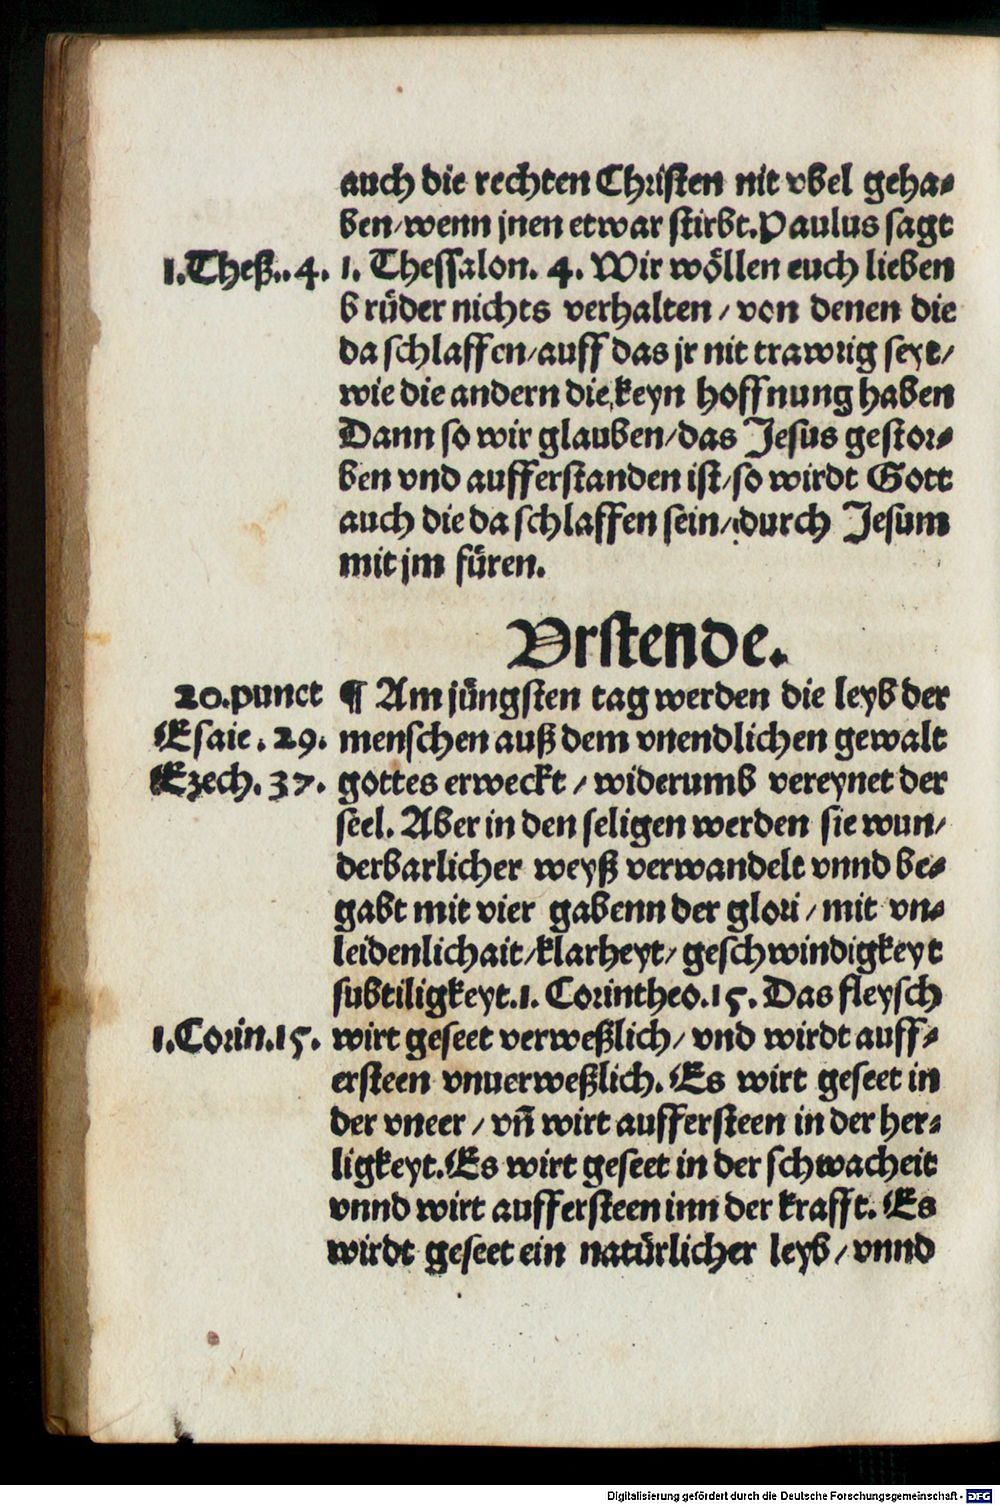 auch die rechten Christen nit vbel geha-
ben/wenn jnen etwar stirbt. Paulus sagt
1. Theß.. 4. 1. Thessalon. 4. Wir wöllen euch lieben
brüder nichts verhalten / von denen die
da schlaffen/auff das jr nit trawrig seyt/
wie die andern die keyn hoffnung haben
Dann so wir glauben/das Jesus gestor-
ben vnd aufferstanden ist/so wirdt Gott
auch die da schlaffen sein/durch Jesum
mit jm füren.
Vrstende.
20. punct ¶ Am jüngsten tag werden die leyb der
Esaie. 29. menschen auß dem vnendlichen gewalt
Ezech. 37. gottes erweckt / widerumb vereynet der
seel. Aber in den seligen werden sie wun/
derbarlicher weyß verwandelt vnnd be-
gabt mit vier gabenn der glori / mit vn-
leidenlichait/klarheyt/geschwindigkeyt
subtiligkeyt. 1. Corintheo. 15. Das fleysch
1. Corin. 15. wirt geseet verweßlich/ vnd wirdt auff-
ersteen vnuerweßlich. Es wirt geseet in
der vneer / vñ wirt auffersteen in der her-
ligkeyt. Es wirt geseet in der schwacheit
vnnd wirt auffersteen inn der krafft. Es
wirdt geseet ein natürlicher leyb / vnnd
Digitalisierung gefördert durch die Deutsche Forschungsgemeinschaft - DFG